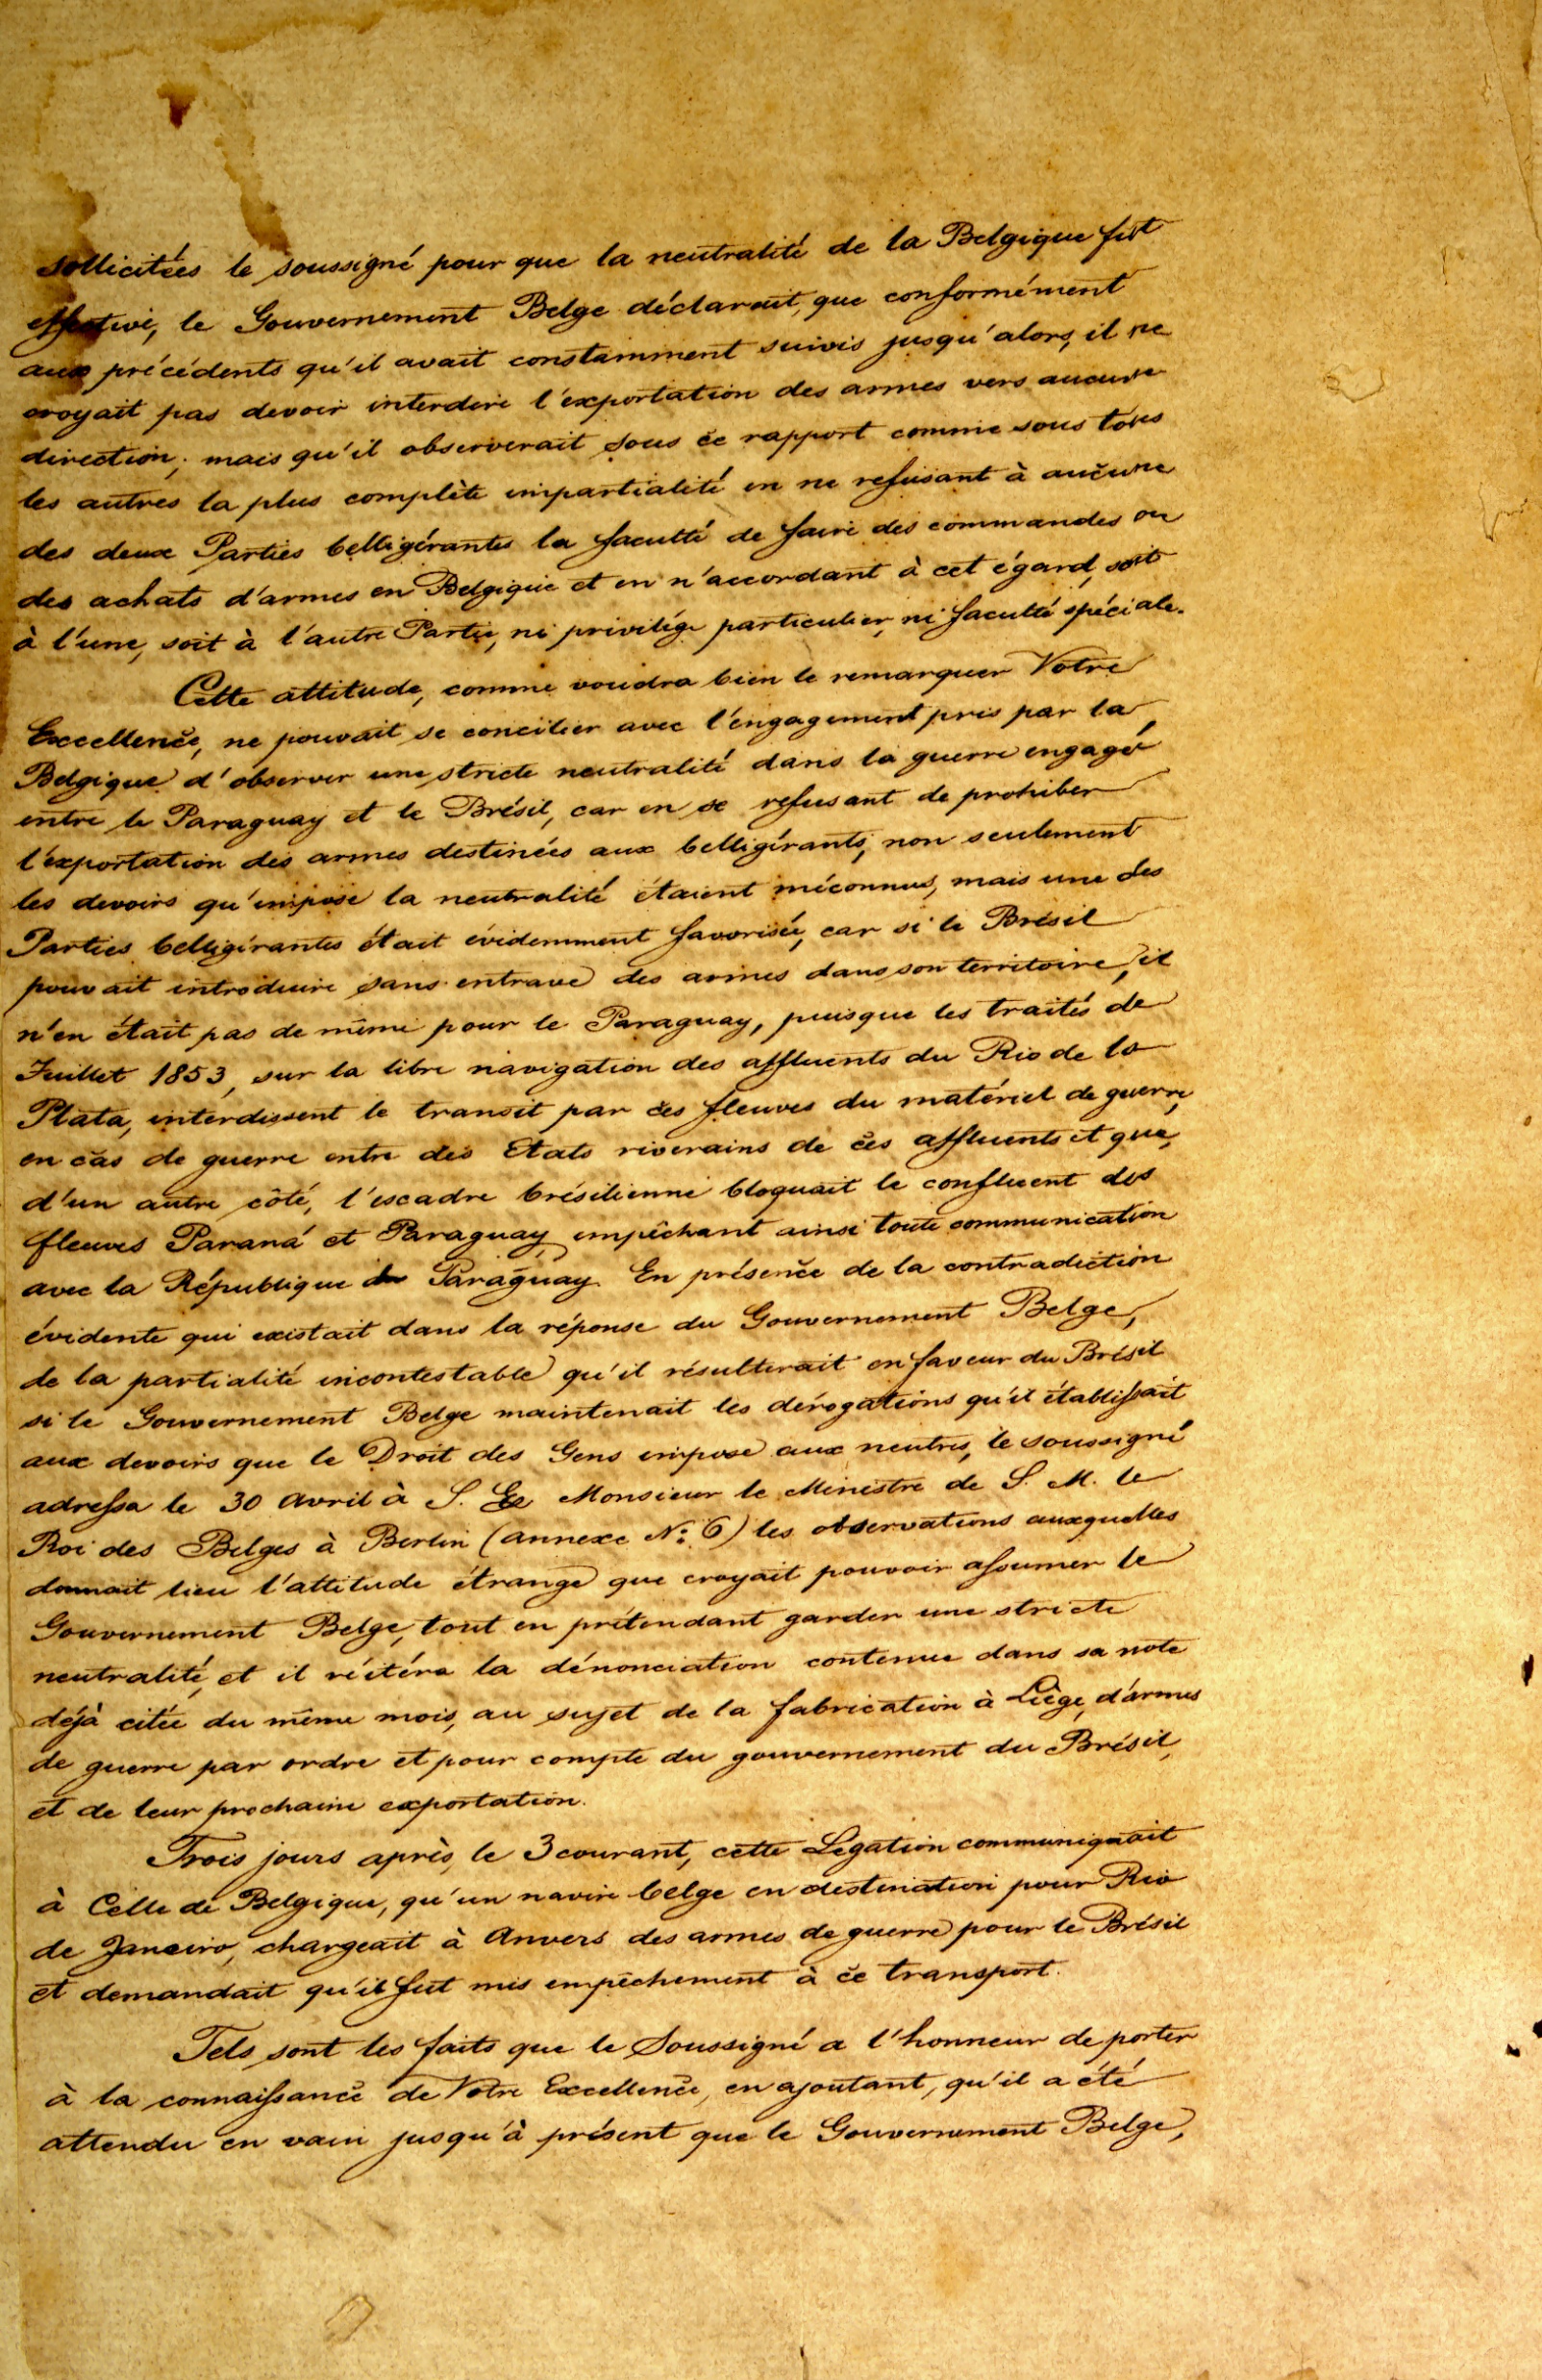 sollicitées le soussigné pour que la neutralité de la Belgique fut
effective, le Gouvernement Belge déclarait, que conformément
aux précédents qu'il avait constamment suivis jusqu'alors, il ne
croyait pas devoir interdire l'exportation des armes vers aucune
direction; mais qu'il observerait sous ce rapport comme sous tous
les autres la plus complète impartialité en ne refusant à aucune
des deux Parties belligérantes la faculté de faire des commandes ou
des achats d'armes en Belgique et en n'accordant à cet égard, soit
à l'une, soit à l'autre Partie, ni privilége particulier, ni faculté spéciale.
Cette attitude, comme voudra bien le remarquer Votre
Excellence, ne pouvait se concilier avec l'engagement pris par la
Belgique d'observer une stricte neutralité dans la guerre engagée
entre le Paraguay et le Brésil, car en se refusant de prohiber
l'exportation des armes destinées aux belligérants, non seulement
les devoirs qu'impose la neutralité étaient méconnus, mais une des
Parties belligérantes était évidemment favorisée, car si le Brésil
pouvait introduire sans entrave des armes dans son territoire, il
n'en était pas de même pour le Paraguay, puisque les traités de
Juillet 1853, sur la libre navigation des affluents du Rio de la
Plata, interdissent le transit par ces fleuves du matériel de guerre,
en cas de guerre entre des Etats riverains de ces affluents et que,
d'un autre côté, l'escadre brésilienne bloquait le confluent des
fleuves Paraná et Paraguay, empêchant ainsi toute communication
avec la République du Paraguay. En présence de la contradiction
évidente qui existait dans la réponse du Gouvernement Belge,
de la partialité incontestable qu'il résulterait en faveur du Brésil
si le Gouvernement Belge maintenait les dérogations qu'il établissait
aux devoirs que le Droit des Gens impose aux neutres, le soussigné
adressa le 30 Avril à S. Ex Monsieur le Ministre de S. M. le
Roi des Belges à Berlin (annexe Nº 6) les observations auxquelles
donnait lieu l'attitude étrange que croyait pouvoir assumer le
Gouvernement Belge, tout en prétendant garder une stricte
neutralité, et il réitéra la dénonciation contenue dans sa note
déjà citée du même mois, au sujet de la fabrication à Liège, d'armes
de guerre par ordre et pour compte du gouvernement du Brésil,
et de leur prochaine exportation.
Trois jours après, le 3 courant, cette Légation communiquait
à Celle de Belgique, qu'un navire belge en destination pour Rio
de Janeiro, chargeait à Anvers des armes de guerre pour le Brésil
et demandait qu'il fut mis empêchement à ce transport.
Tels sont les faits que le Soussigné a l'honneur de porter
à la connaissance de Votre Excellence, en ajoutant, qu'il a été
attendu en vain jusqu'à présent que le Gouvernement Belge,